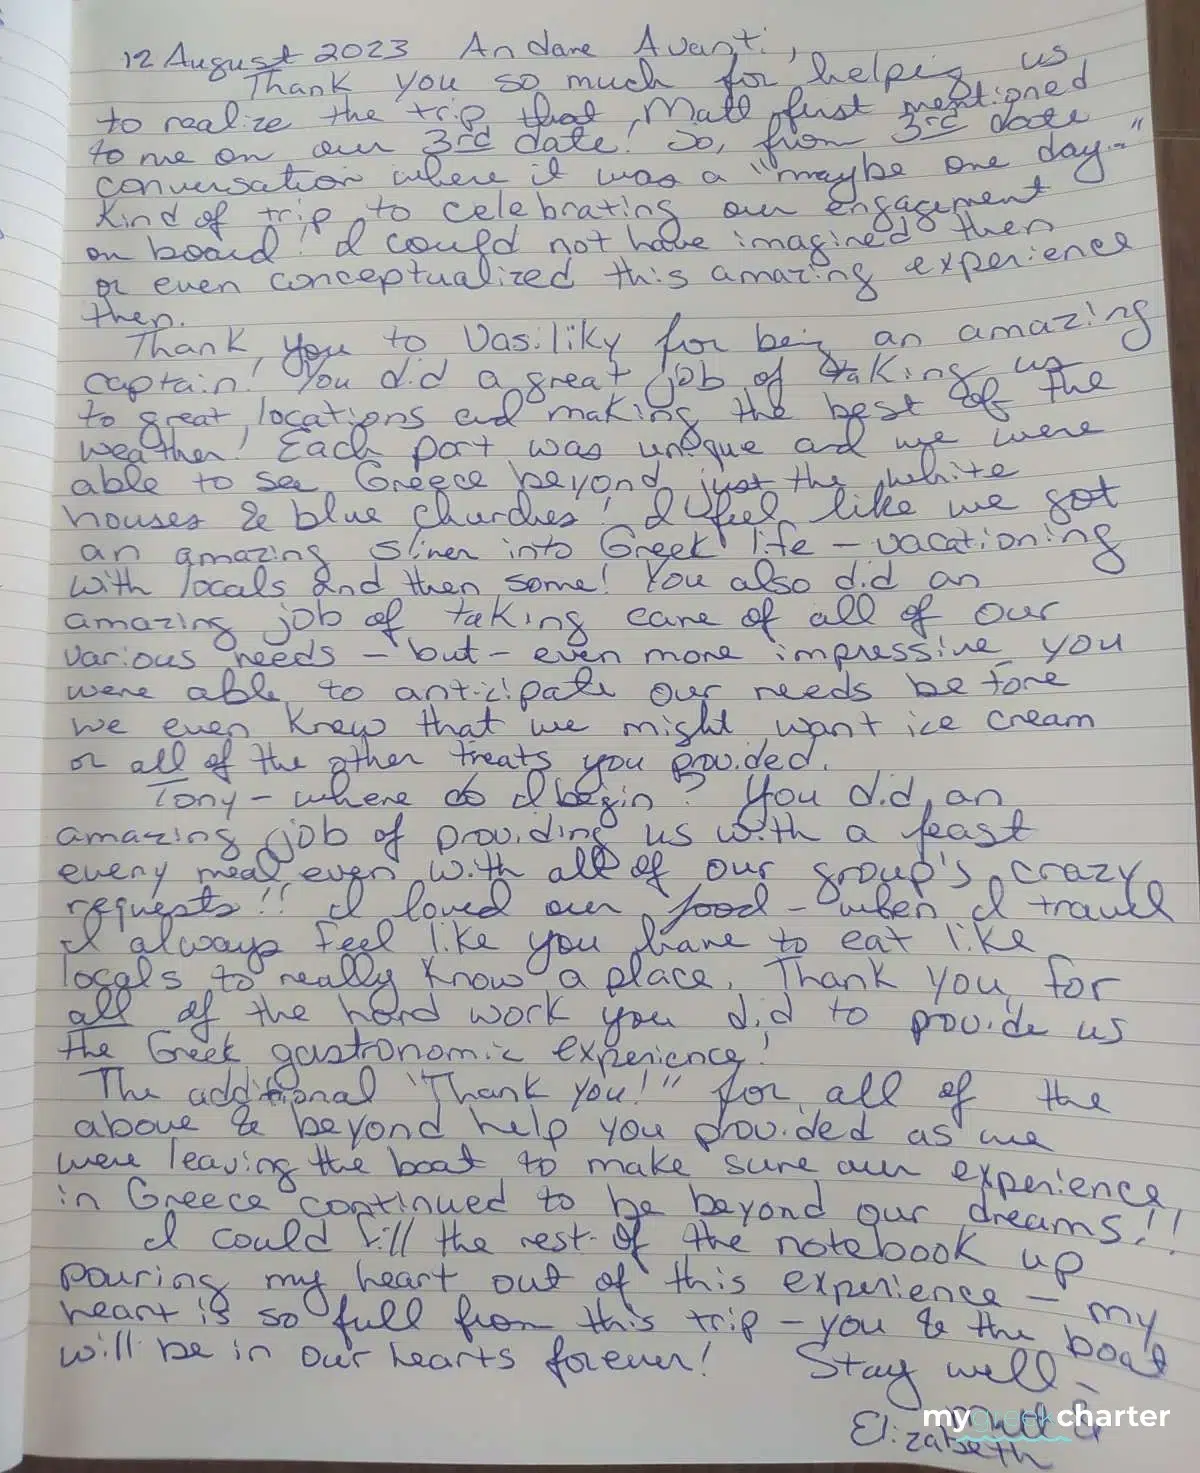 12 August 2023 Andare Avanti,
Thank you so much for helping us
to realize the trip that Matt first mentioned
to me on our 3rd date! So, from 3rd date
conversation where it was a "maybe one day.."
kind of trip to celebrating our engagement
on board! I could not have imagined then
or even conceptualized this amazing experience
then.
Thank you to Vasiliky for being an amazing
captain! You did a great job of taking us
to great locations and making the best of the
weather! Each port was unique and we were
able to see Greece beyond just the white
houses & blue churches! I feel like we got
an amazing sliver into Greek life - vacationing
with locals and then some! You also did an
amazing job of taking care of all of our
various needs - but - even more impressive you
were able to anticipate our needs before
we even knew that we might want ice cream
or all of the other treats you provided.
Tony - where do I begin? You did an
amazing job of providing us with a feast
every meal even with all of our group's crazy
requests!! I loved our food - when I travel
I always feel like you have to eat like
locals to really know a place. Thank you for
all of the hard work you did to provide us
the Greek gastronomic experience!
The additional "Thank you!" for all of the
above & beyond help you provided as we
were leaving the boat to make sure our experience
in Greece continued to be beyond our dreams!!
I could fill the rest of the notebook up
pouring my heart out of this experience - my
heart is so full from this trip - you & the boat
will be in our hearts forever! Stay well -
Matt &
Elizabeth
mygreekcharter